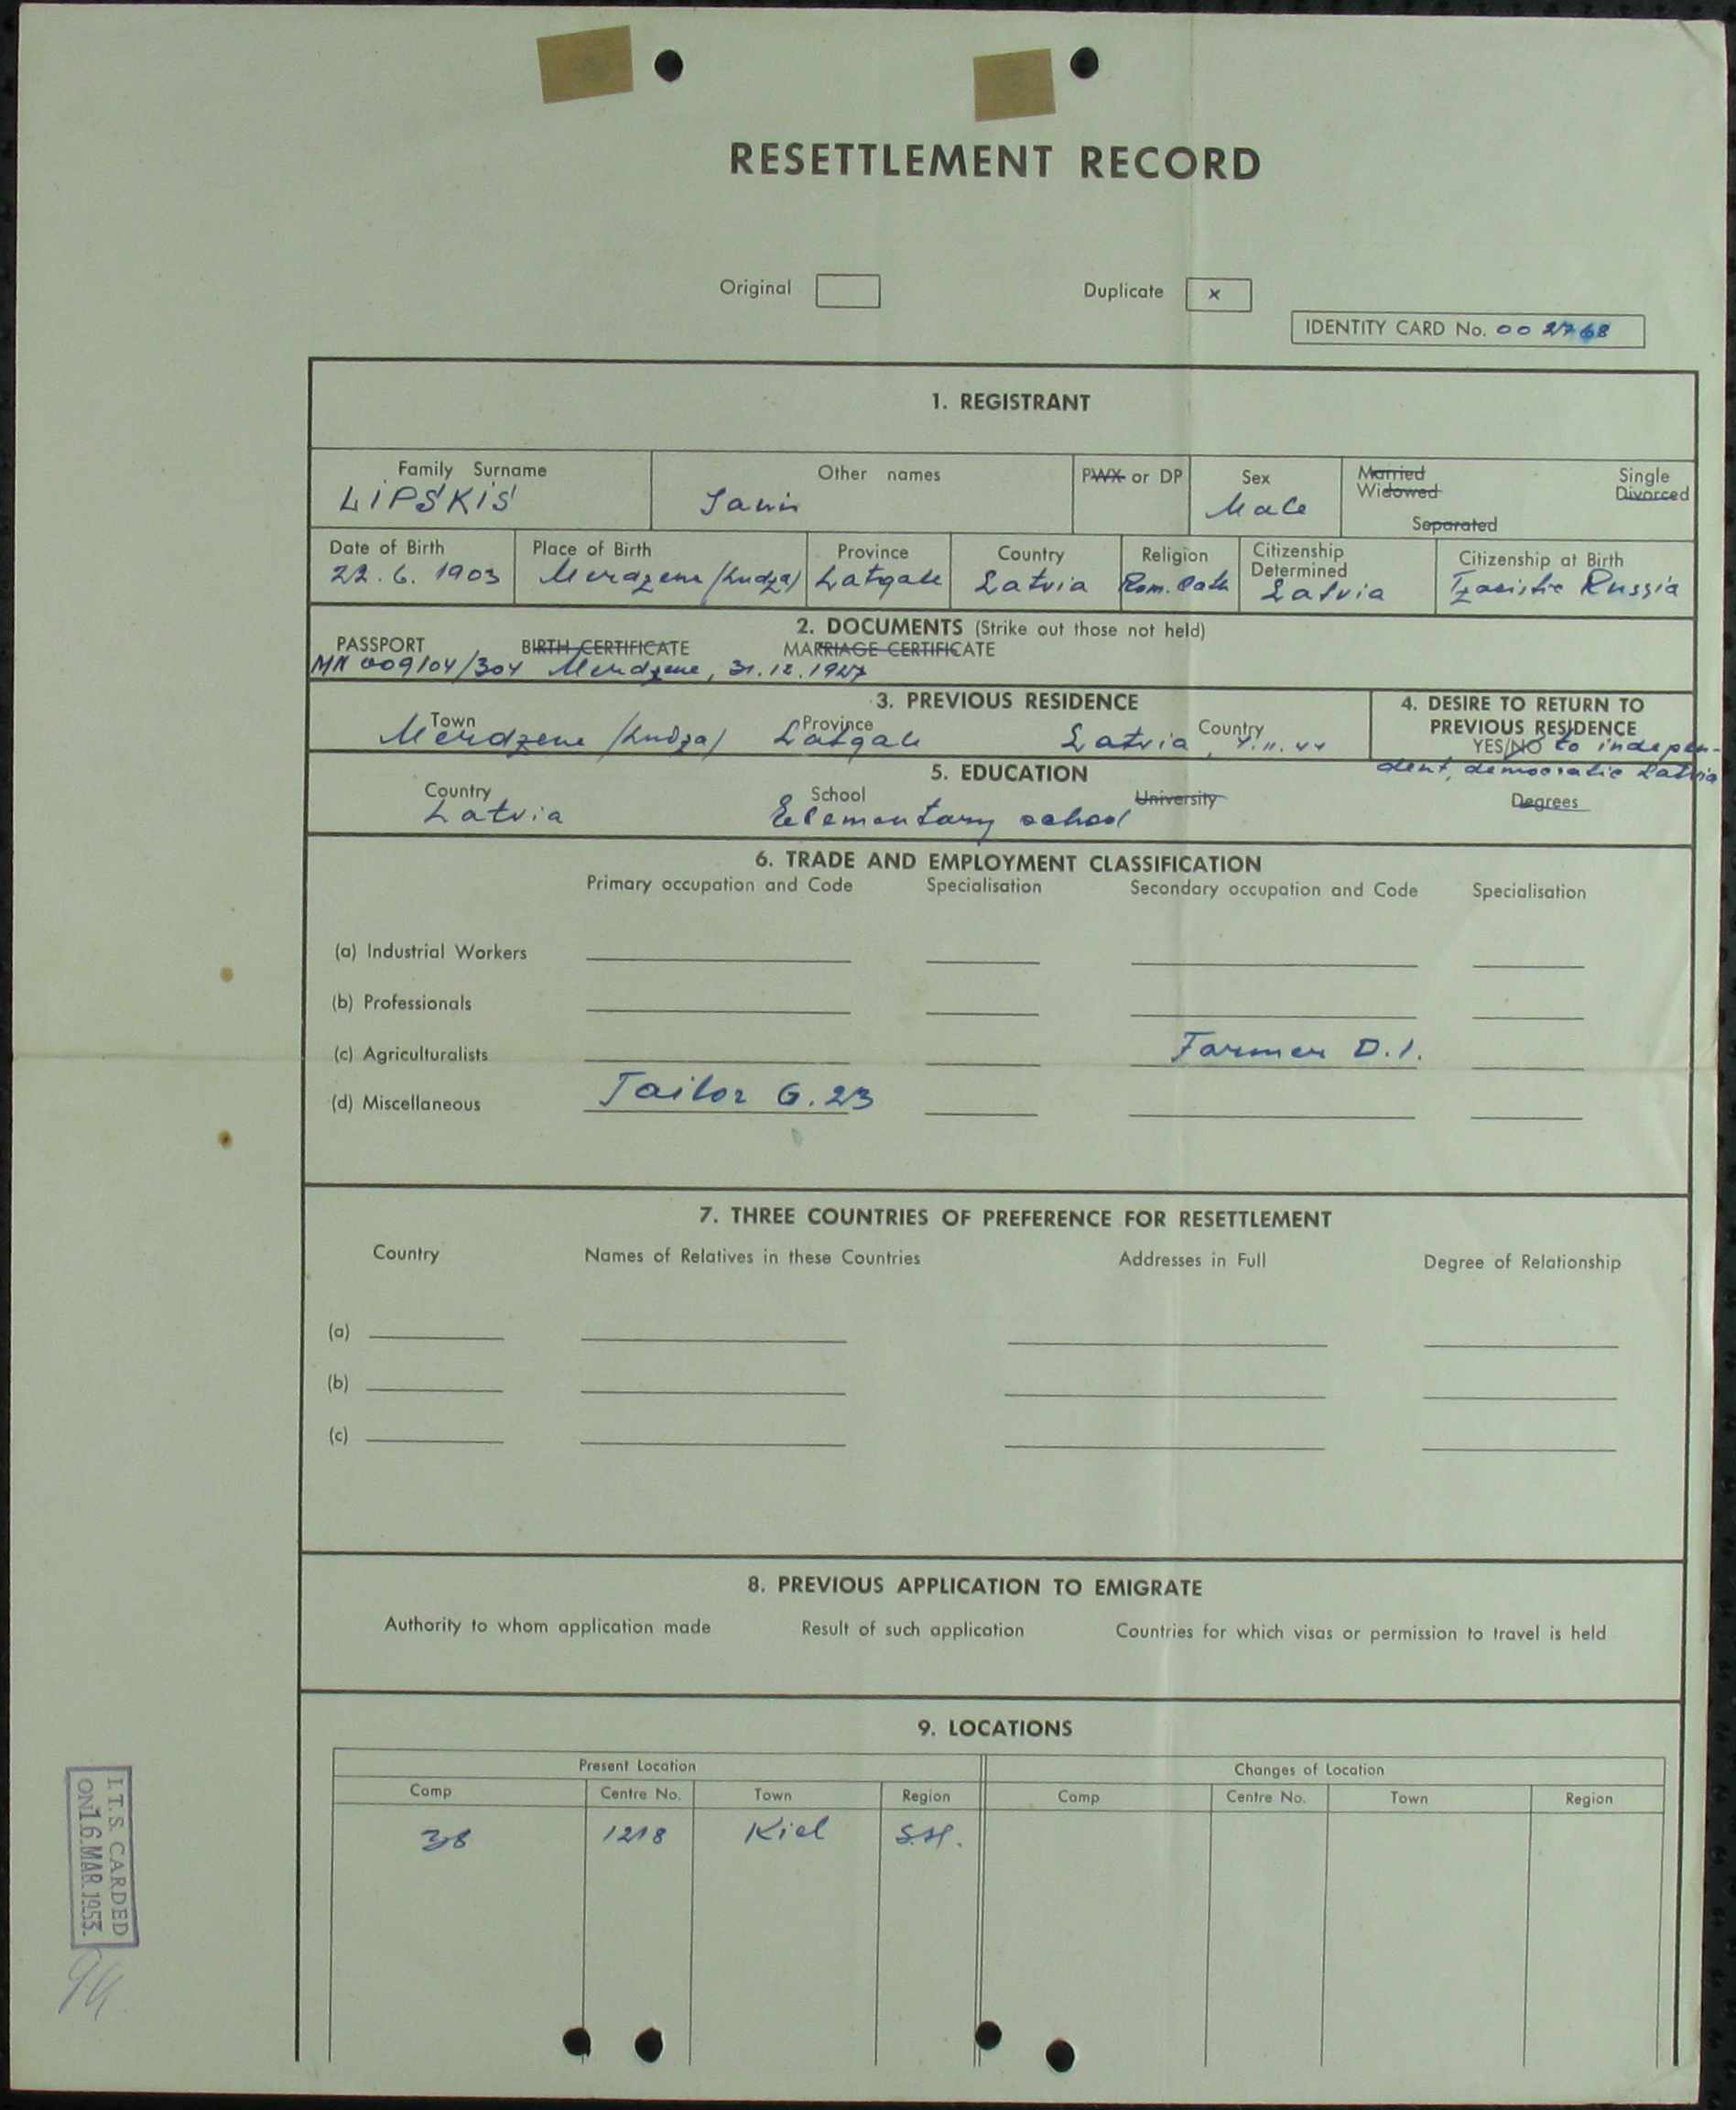 RESETTLEMENT RECORD
Original
Duplicate x
IDENTITY CARD No. 002768
1. REGISTRANT
Family Surname Other names PWX or DP Sex Married Single
Widowed Divorced
Separated
LIPSKIS Janis Male
Date of Birth Place of Birth Province Country Religion Citizenship Determined Citizenship at Birth
22.6.1903 Merdzene (Ludza) Latgale Latvia Rom. Cath Latvia Tzaristic Russia
2. DOCUMENTS (Strike out those not held)
PASSPORT BIRTH CERTIFICATE MARRIAGE CERTIFICATE
MN 009104/304 Merdzene, 31.12.1927
3. PREVIOUS RESIDENCE
Town Province Country
Merdzene (Ludza) Latgale Latvia, 4.11.44
4. DESIRE TO RETURN TO
PREVIOUS RESIDENCE
YES/NO to indepen-
dent, democratic Latvia
5. EDUCATION
Country School University Degrees
Latvia Elementary school
6. TRADE AND EMPLOYMENT CLASSIFICATION
Primary occupation and Code Specialisation Secondary occupation and Code Specialisation
(a) Industrial Workers
(b) Professionals
(c) Agriculturalists Farmer D.1.
(d) Miscellaneous Tailor G.23
7. THREE COUNTRIES OF PREFERENCE FOR RESETTLEMENT
Country Names of Relatives in these Countries Addresses in Full Degree of Relationship
(a)
(b)
(c)
8. PREVIOUS APPLICATION TO EMIGRATE
Authority to whom application made Result of such application Countries for which visas or permission to travel is held
9. LOCATIONS
Present Location Changes of Location
Camp Centre No. Town Region Camp Centre No. Town Region
38 1218 Kiel S.H.
I.T.S. CARDED
ON 16. MAR. 1953